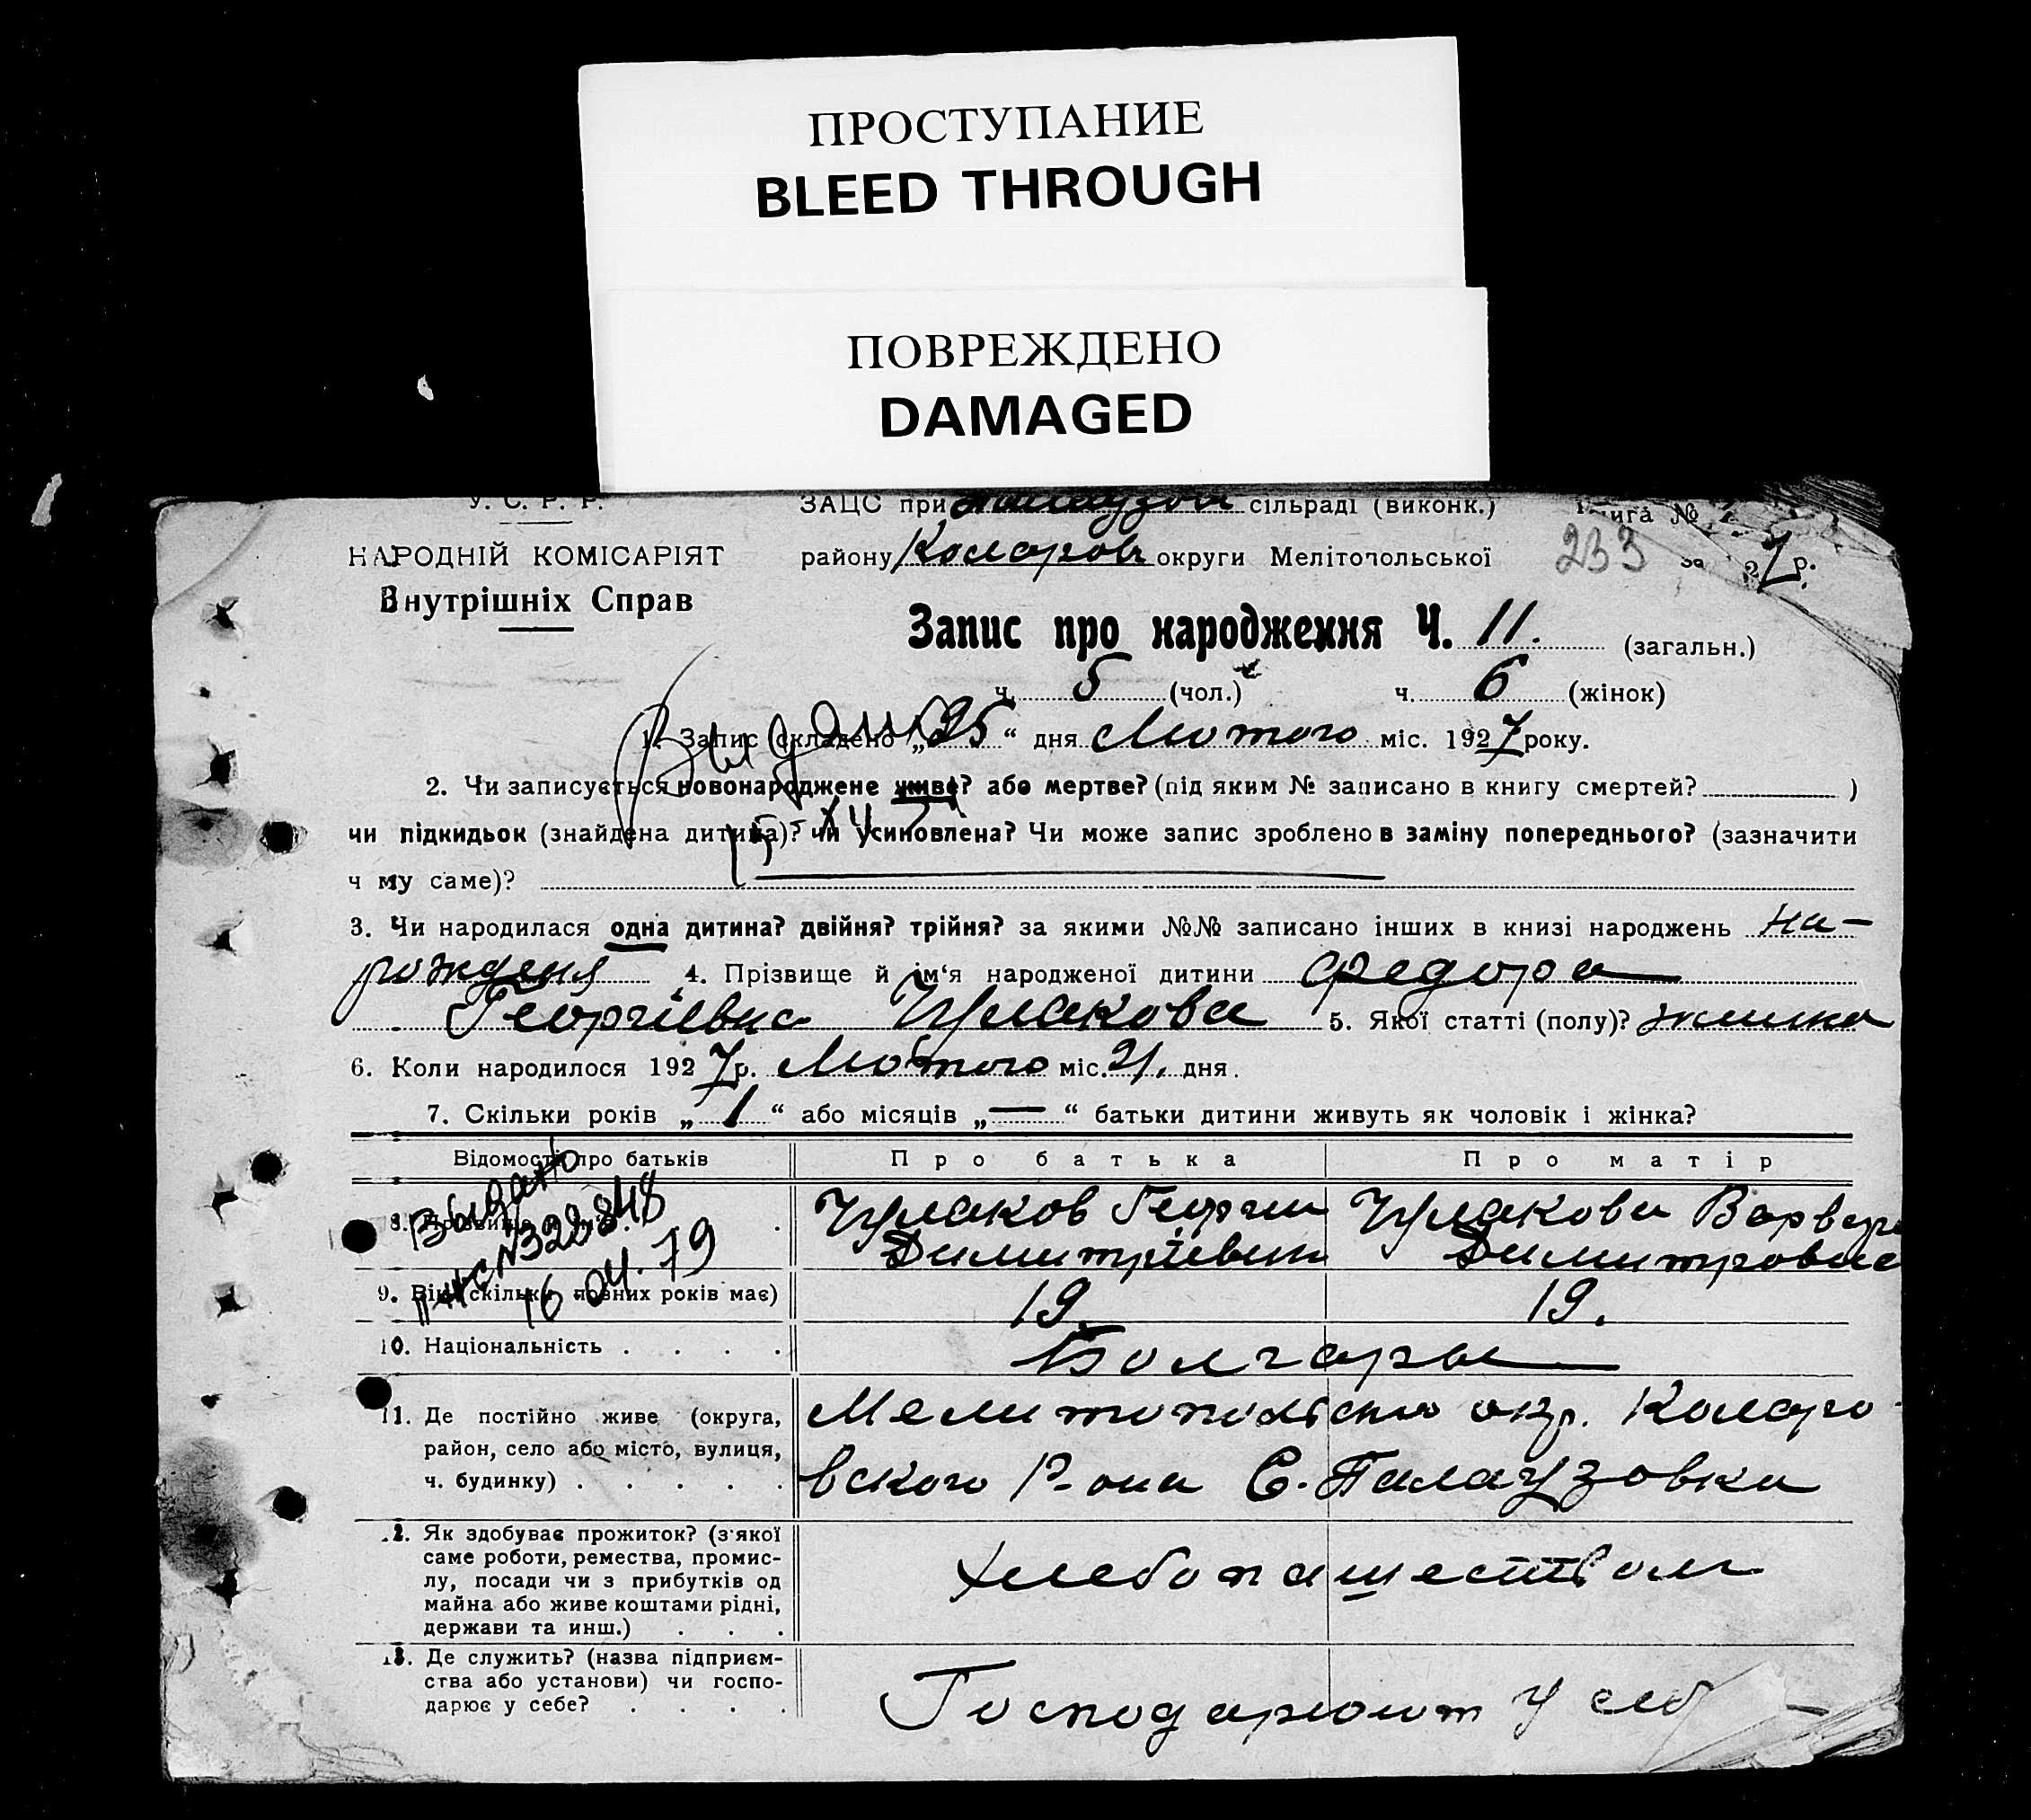 ПРОСТУПАНИЕ
BLEED THROUGH
ПОВРЕЖДЕНО
DAMAGED
У. С. Р. Р.
НАРОДНІЙ КОМІСАРІЯТ
Внутрішніх Справ
ЗАЦС при сільраді (виконк.)
району Коларов округи Мелітопольської
Книга №
233
за 1927 р.
Запис про народження Ч. 11. (загальн.)
ч. 5 (чол.) ч. 6 (жінок)
1. Запис складено „25“ дня Лютого міс. 1927 року.
2. Чи записується новонароджене живе? або мертве? (під яким № записано в книгу смертей? )
чи підкидьок (знайдена дитина)? чи усиновлена? Чи може запис зроблено в заміну попереднього? (зазначити
ч му саме)?
3. Чи народилася одна дитина? двійня? трійня? за якими №№ записано інших в книзі народжень на-
рожденя 4. Прізвище й ім‘я народженої дитини Федора
Георгіевна Чулакова 5. Якої статті (полу)? жинка
6. Коли народилося 1927 р. Лютого міс. 21. дня.
7. Скільки років „1“ або місяців „—“ батьки дитини живуть як чоловік і жінка?
Відомості про батьків Про батька Про матір
Выдано
№ 320848
16.04.79
8. Прізвище
Чулаков Георгии Чулакова Варвара
Димитріевич Димитровна
9. Вік (скільки повних років має) 19. 19.
10. Національність . . . . Болгары
11. Де постійно живе (округа,
район, село або місто, вулиця,
ч. будинку) . . . . .
Мелитопольская окр. Коларо
вского Р-она С. Палаузовка
12. Як здобуває прожиток? (з якої
саме роботи, ремества, промис-
лу, посади чи з прибутків од
майна або живе коштами рідні,
держави та инш.) . . .
хлебопашеством
13. Де служить? (назва підприєм-
ства або установи) чи госпо-
дарює у себе? . . . .
Господарюют у себ